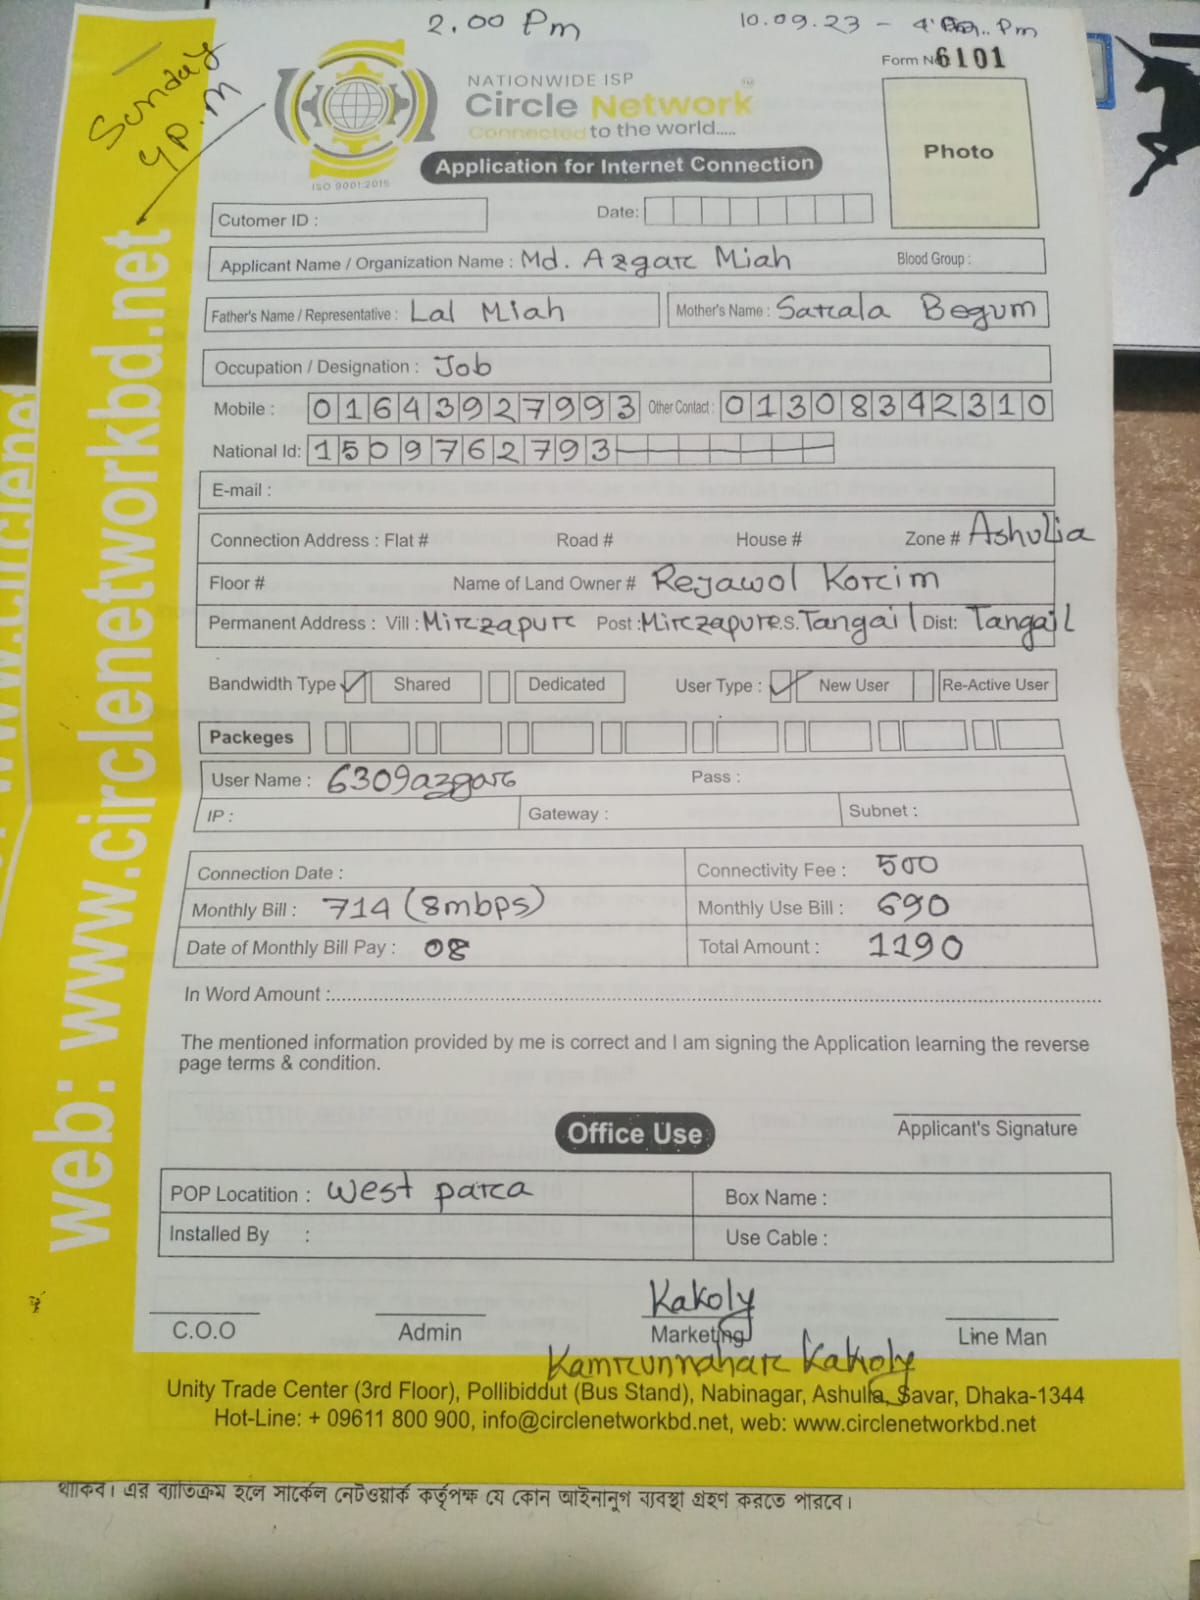 2.00 Pm
10.09.23 - 4 Pm
Sunday
4 P.M
Form No 6101
NATIONWIDE ISP
Circle Network
Connected to the world.....
ISO 9001:2015
Application for Internet Connection
Photo
Cutomer ID :
Date:
Applicant Name / Organization Name : Md. Azgar Miah Blood Group :
Father's Name / Representative : Lal Miah Mother's Name : Sarala Begum
Occupation / Designation : Job
Mobile : 01643927993 Other Contact : 01308342310
National Id: 1509762793
E-mail :
Connection Address : Flat # Road # House # Zone # Ashulia
Floor # Name of Land Owner # Rejawol Korim
Permanent Address : Vill : Mirzapur Post : Mirzapur P.S. Tangail Dist: Tangail
Bandwidth Type ✓ Shared Dedicated User Type : ✓ New User Re-Active User
Packeges
User Name : 6309azgar Pass :
IP : Gateway : Subnet :
Connection Date : Connectivity Fee : 500
Monthly Bill : 714 (8mbps) Monthly Use Bill : 690
Date of Monthly Bill Pay : 08 Total Amount : 1190
In Word Amount :
The mentioned information provided by me is correct and I am signing the Application learning the reverse
page terms & condition.
Applicant's Signature
Office Use
POP Locatition : West para Box Name :
Installed By : Use Cable :
Kakoly
C.O.O Admin Marketing Line Man
Kamrunnahar Kakoly
Unity Trade Center (3rd Floor), Pollibiddut (Bus Stand), Nabinagar, Ashulia, Savar, Dhaka-1344
Hot-Line: + 09611 800 900, info@circlenetworkbd.net, web: www.circlenetworkbd.net
web: www.circlenetworkbd.net
থাকিব। এর ব্যতিক্রম হলে সার্কেল নেটওয়ার্ক কর্তৃপক্ষ যে কোন আইনানুগ ব্যবস্থা গ্রহণ করতে পারবে।